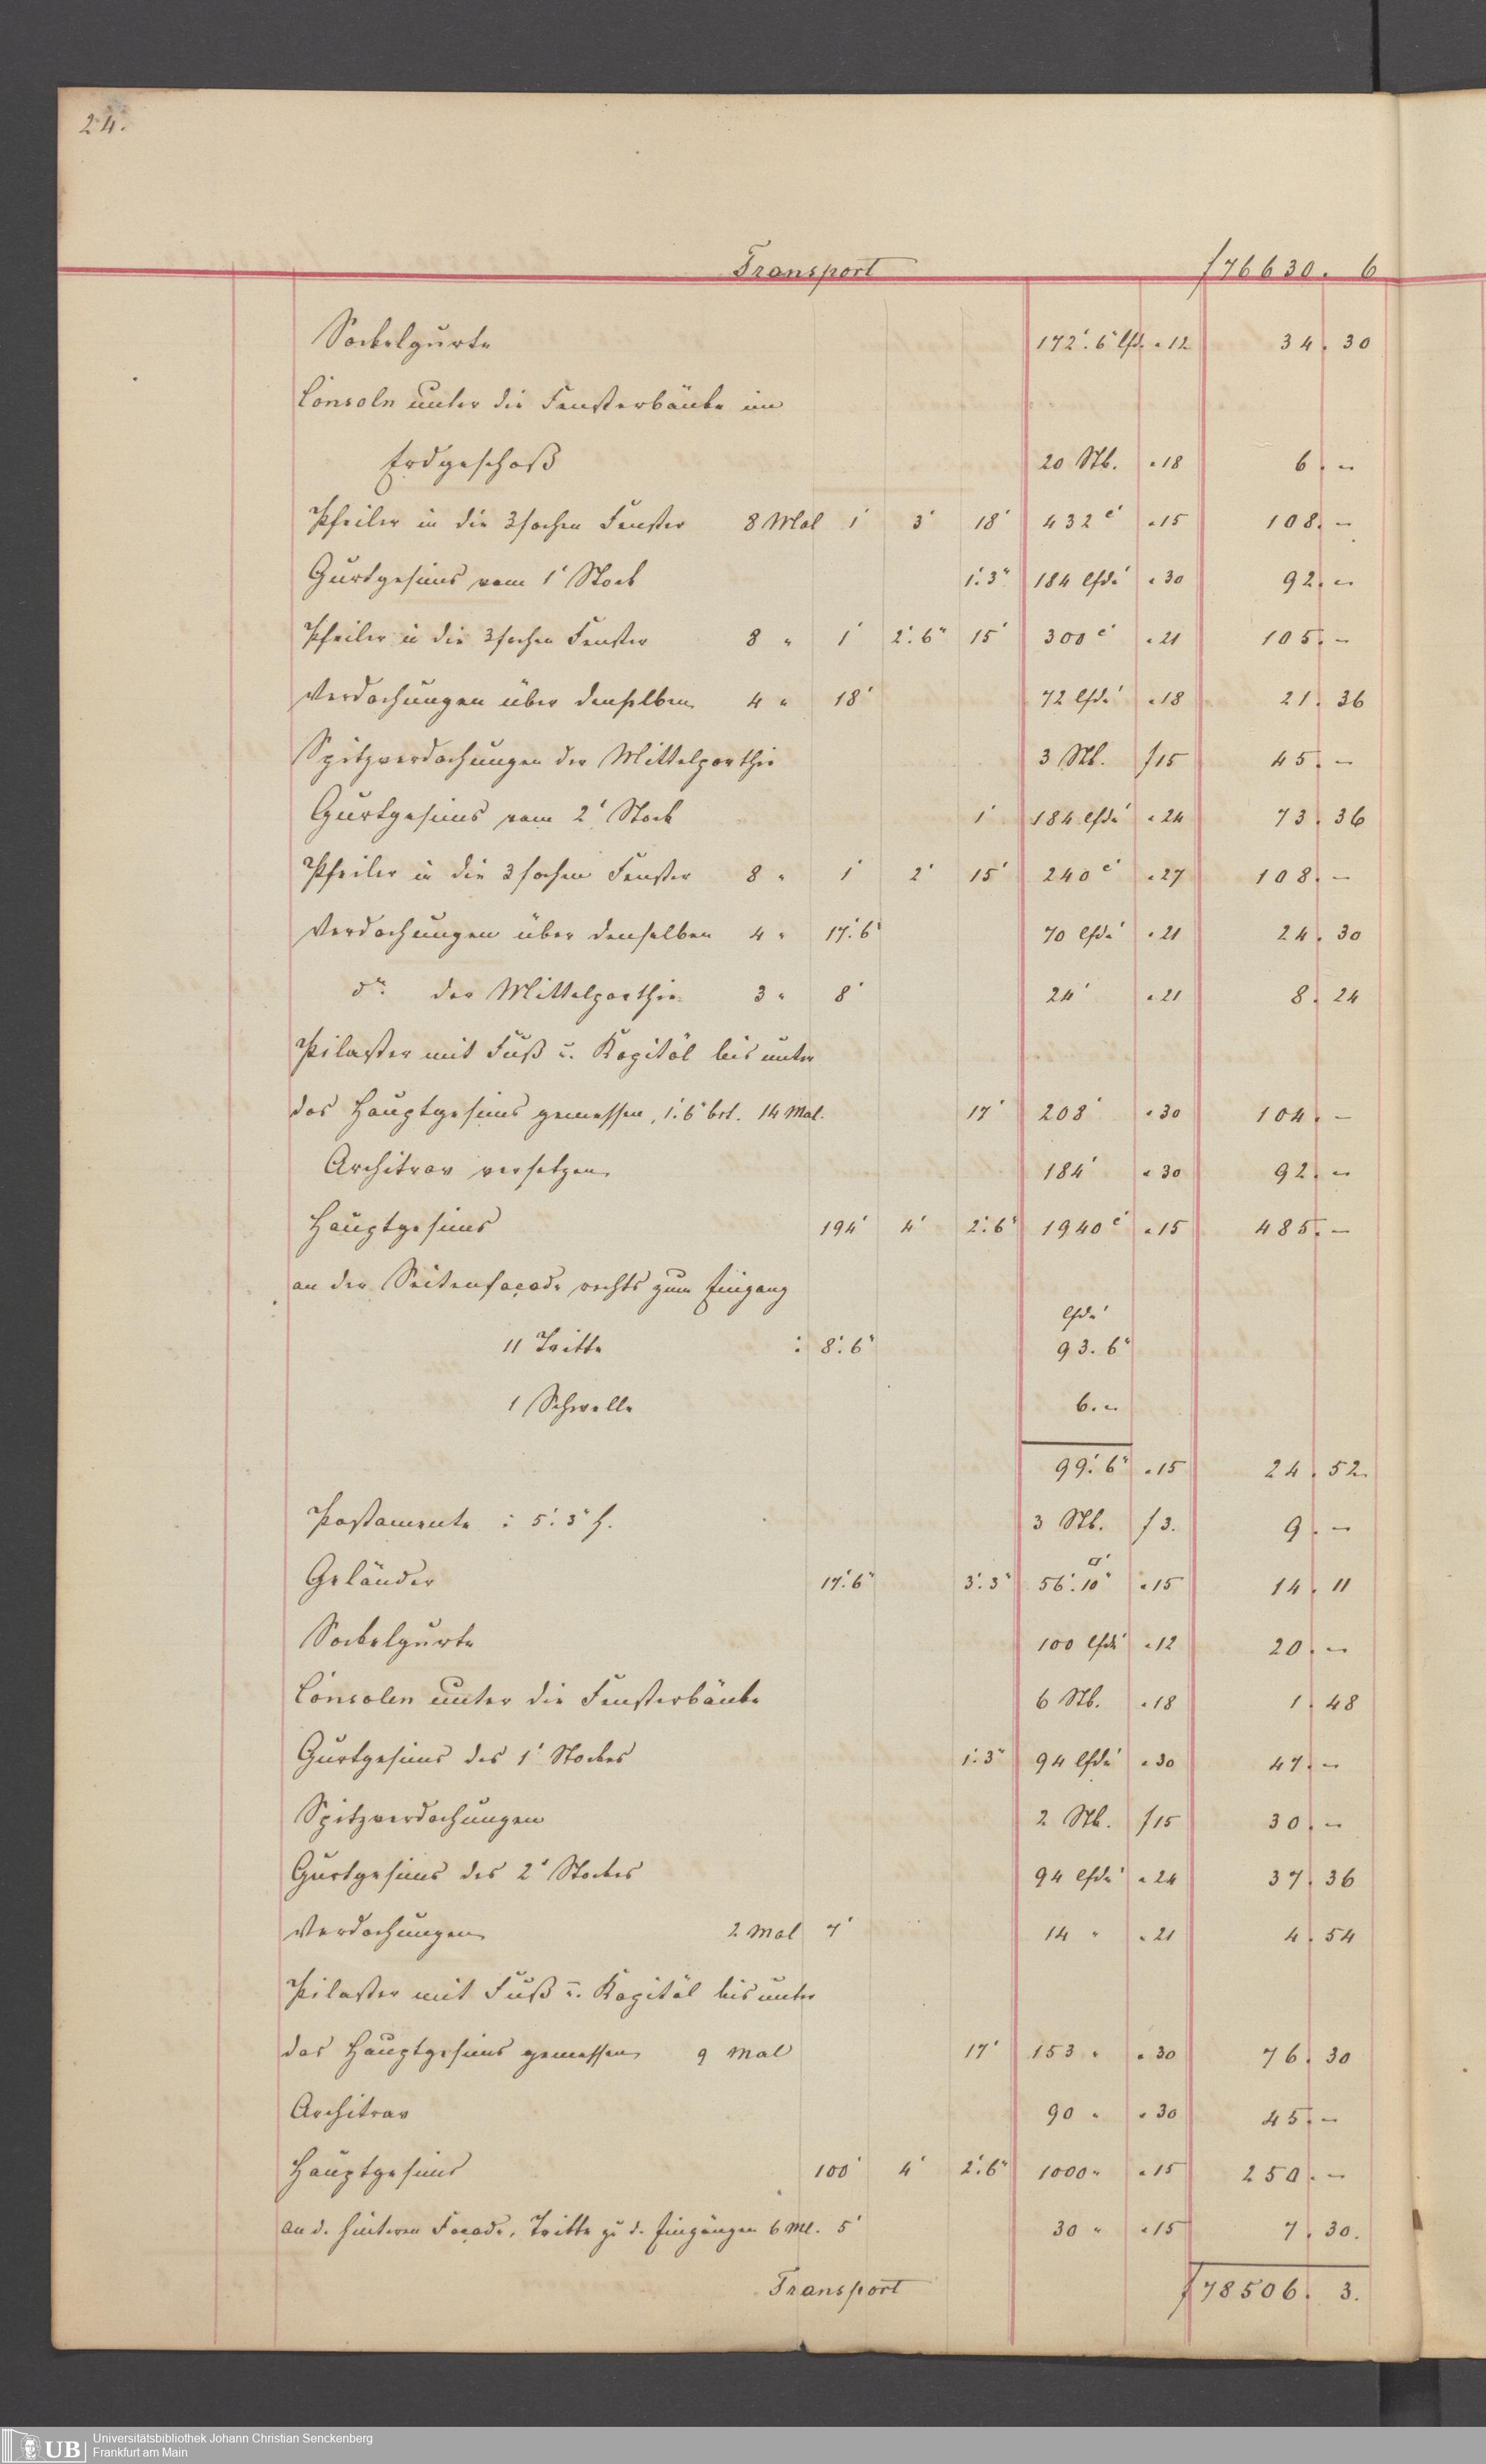 24.
Transport f 76630. 6
Sockelgurte 172'. 6" lfd. " 12 34. 30
Consoln unter die Fensterbänke im
Erdgeschoß 20 Stk. " 18 6. –
Pfeiler in die 3fachen Fenster 8 Mal 1' 3' 18' 432 c' " 15 108. –
Gurtgesims vom 1' Stock 1'. 3" 184 lfde' " 30 92. –
Pfeiler in die 3fachen Fenster 8 " 1' 2'. 6" 15' 300 c' " 21 105. –
Verdachungen über denselben 4 " 18' 72 lfde' " 18 21. 36
Spitzverdachungen der Mittelparthie 3 Stk. f 15 45. –
Gurtgesims vom 2' Stock 1' 184 lfde' " 24 73. 36
Pfeiler in die 3fachen Fenster 8 " 1' 2' 15' 240 c' " 27 108. –
Verdachungen über denselben 4 " 17'. 6" 70 lfde' " 21 24. 30
do. der Mittelparthie 3 " 8' 24' " 21 8. 24
Pilaster mit Fuß u. Kapitäl bis unter
das Hauptgesims gemessen, 1'. 6" brt. 14 Mal. 17' 208' " 30 104. –
Architrav versetzen 184' " 30 92. –
Hauptgesims 194' 4' 2'. 6" 1940 c' " 15 485. –
an der Seitenfaçade rechts zum Eingang
lfde'
11 Tritte : 8'. 6" 93. 6"
1 Schwelle 6. –
99'. 6" " 15 24. 52.
Postamente : 5'. 3" h. 3 Stk. f 3. 9. –
Geländer 17'. 6" 3'. 3" 56'. 10" □' " 15 14. 11
Sockelgurte 100 lfde' " 12 20. –
Consolen unter die Fensterbänke 6 Stk. " 18 1. 48
Gurtgesims des 1' Stockes 1'. 3" 94 lfde' " 30 47. –
Spitzverdachungen 2 Stk. f 15 30. –
Gurtgesims des 2' Stockes 94 lfde' " 24 37. 36
Verdachungen 2 Mal 7' 14 " " 21 4. 54
Pilaster mit Fuß u. Kapitäl bis unter
das Hauptgesims gemessen 9 Mal 17' 153 " " 30 76. 30
Architrav 90 " " 30 45. –
Hauptgesims 100' 4' 2'. 6" 1000 " " 15 250. –
an d. hinteren Façade, Tritte zu d. Eingängen 6 Ml. 5' 30 " " 15 7. 30.
Transport f 78506. 3.
UB Universitätsbibliothek Johann Christian Senckenberg
Frankfurt am Main